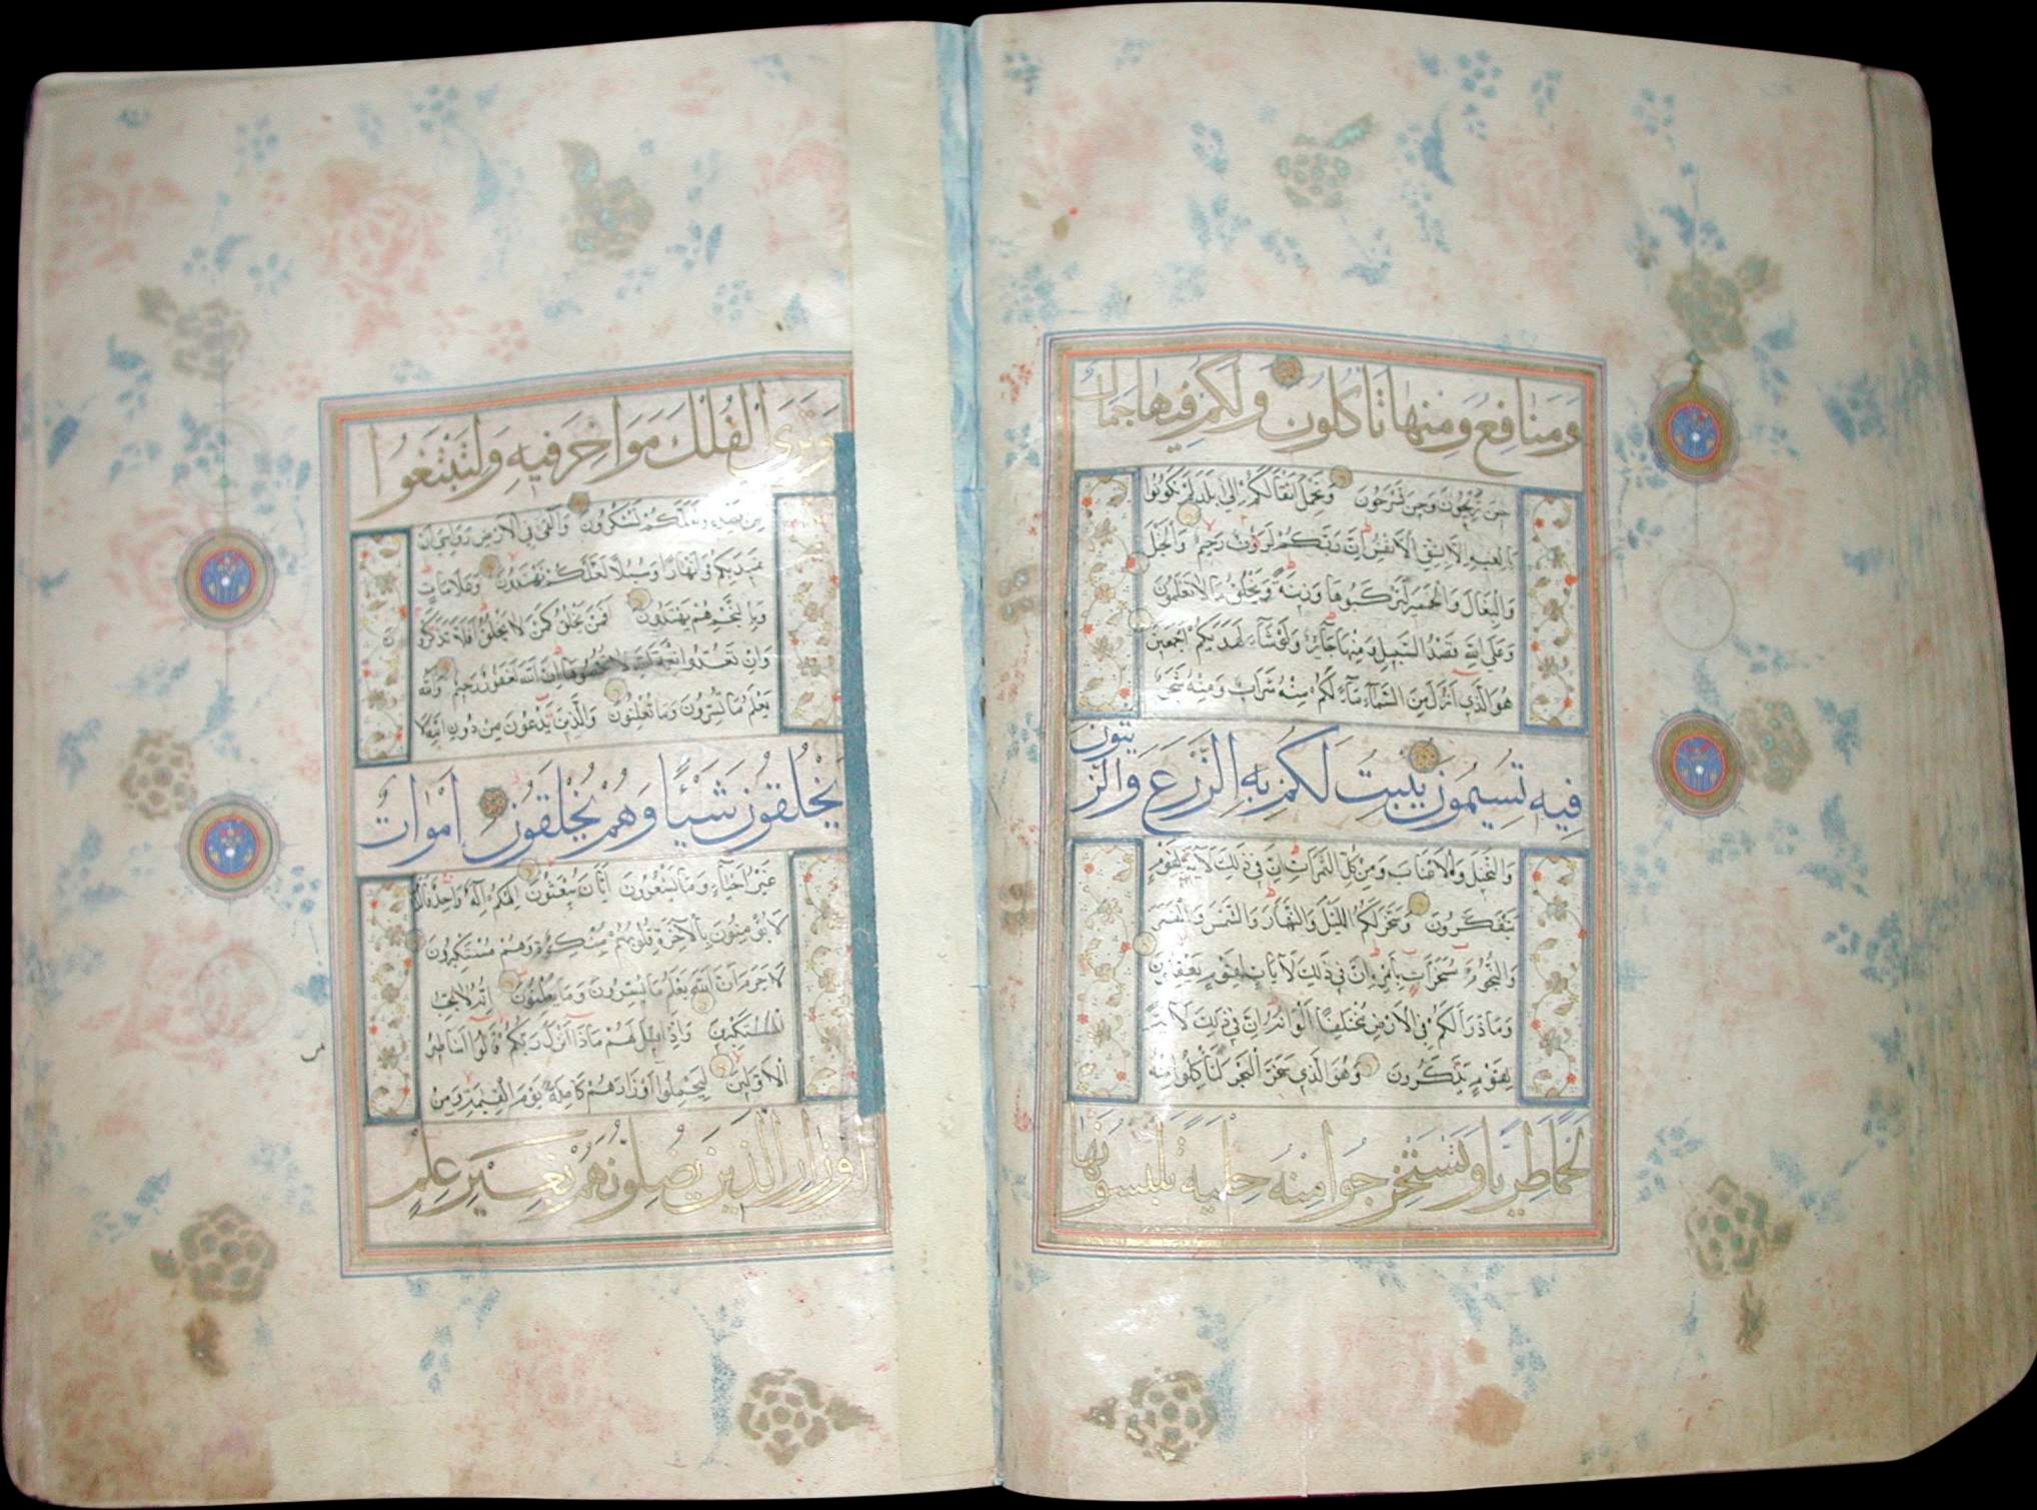 ومنافع ومنها تأكلون ولكم فيها جمال
حين تريحون وحين تسرحون وتحمل اثقالكم الى بلد لم تكونوا
بالغيه الا بشق الانفس ان ربكم لرؤف رحيم والخيل
والبغال والحمير لتركبوها وزينة ويخلق ما لا تعلمون
وعلى الله قصد السبيل ومنها جآئر ولو شآء لهديكم اجمعين
هو الذي انزل من السمآء مآء لكم منه شراب ومنه شجر
فيه تسيمون ينبت لكم به الزرع والزيتون
والنخيل والاعناب ومن كل الثمرات ان في ذلك لآية لقوم
يتفكرون وسخر لكم الليل والنهار والشمس والقمر
والنجوم مسخرات بامره ان في ذلك لآيات لقوم يعقلون
وما ذرأ لكم في الارض مختلفا الوانه ان في ذلك لآية
لقوم يذكرون وهو الذي سخر البحر لتأكلوا منه
لحما طريا وتستخرجوا منه حلية تلبسونها
وترى الفلك مواخر فيه ولتبتغوا
من فضله ولعلكم تشكرون والقى في الارض رواسي ان
تميد بكم وانهارا وسبلا لعلكم تهتدون وعلامات
وبالنجم هم يهتدون افمن يخلق كمن لا يخلق افلا تذكرون
وان تعدوا نعمة الله لا تحصوها ان الله لغفور رحيم والله
يعلم ما تسرون وما تعلنون والذين يدعون من دون الله لا
يخلقون شيئا وهم يخلقون اموات
غير احيآء وما يشعرون ايان يبعثون الهكم اله واحد فالذين
لا يؤمنون بالآخرة قلوبهم منكرة وهم مستكبرون
لا جرم ان الله يعلم ما يسرون وما يعلنون انه لا يحب
المستكبرين واذا قيل لهم ماذا انزل ربكم قالوا اساطير
الاولين ليحملوا اوزارهم كاملة يوم القيمة ومن
اوزار الذين يضلونهم بغير علم